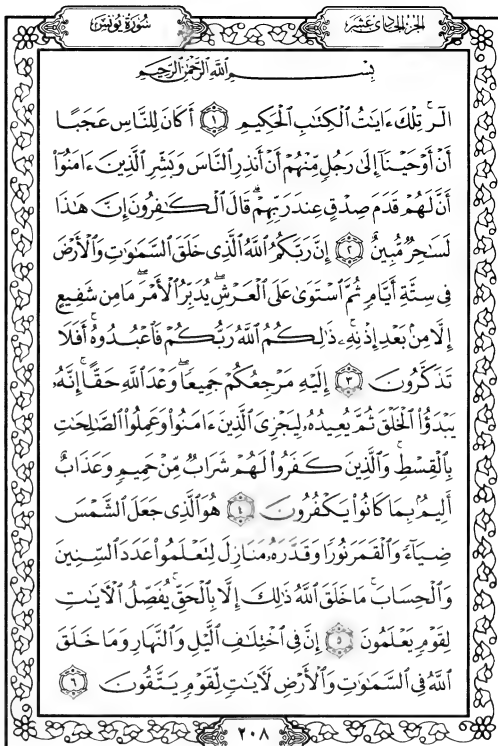 الجزء الحادي عشر
سورة يونس
بِسْمِ اللَّهِ الرَّحْمَٰنِ الرَّحِيمِ
الٓر ۚ تِلْكَ ءَايَٰتُ ٱلْكِتَٰبِ ٱلْحَكِيمِ ۝١ أَكَانَ لِلنَّاسِ عَجَبًا
أَنْ أَوْحَيْنَآ إِلَىٰ رَجُلٍ مِّنْهُمْ أَنْ أَنذِرِ ٱلنَّاسَ وَبَشِّرِ ٱلَّذِينَ ءَامَنُوٓا۟
أَنَّ لَهُمْ قَدَمَ صِدْقٍ عِندَ رَبِّهِمْ ۗ قَالَ ٱلْكَٰفِرُونَ إِنَّ هَٰذَا
لَسَٰحِرٌ مُّبِينٌ ۝٢ إِنَّ رَبَّكُمُ ٱللَّهُ ٱلَّذِى خَلَقَ ٱلسَّمَٰوَٰتِ وَٱلْأَرْضَ
فِى سِتَّةِ أَيَّامٍ ثُمَّ ٱسْتَوَىٰ عَلَى ٱلْعَرْشِ ۖ يُدَبِّرُ ٱلْأَمْرَ ۖ مَا مِن شَفِيعٍ
إِلَّا مِنۢ بَعْدِ إِذْنِهِۦ ۚ ذَٰلِكُمُ ٱللَّهُ رَبُّكُمْ فَٱعْبُدُوهُ ۚ أَفَلَا
تَذَكَّرُونَ ۝٣ إِلَيْهِ مَرْجِعُكُمْ جَمِيعًا ۖ وَعْدَ ٱللَّهِ حَقًّا ۚ إِنَّهُۥ
يَبْدَؤُا۟ ٱلْخَلْقَ ثُمَّ يُعِيدُهُۥ لِيَجْزِىَ ٱلَّذِينَ ءَامَنُوا۟ وَعَمِلُوا۟ ٱلصَّٰلِحَٰتِ
بِٱلْقِسْطِ ۚ وَٱلَّذِينَ كَفَرُوا۟ لَهُمْ شَرَابٌ مِّنْ حَمِيمٍ وَعَذَابٌ
أَلِيمٌۢ بِمَا كَانُوا۟ يَكْفُرُونَ ۝٤ هُوَ ٱلَّذِى جَعَلَ ٱلشَّمْسَ
ضِيَآءً وَٱلْقَمَرَ نُورًا وَقَدَّرَهُۥ مَنَازِلَ لِتَعْلَمُوا۟ عَدَدَ ٱلسِّنِينَ
وَٱلْحِسَابَ ۚ مَا خَلَقَ ٱللَّهُ ذَٰلِكَ إِلَّا بِٱلْحَقِّ ۚ يُفَصِّلُ ٱلْءَايَٰتِ
لِقَوْمٍ يَعْلَمُونَ ۝٥ إِنَّ فِى ٱخْتِلَٰفِ ٱلَّيْلِ وَٱلنَّهَارِ وَمَا خَلَقَ
ٱللَّهُ فِى ٱلسَّمَٰوَٰتِ وَٱلْأَرْضِ لَءَايَٰتٍ لِّقَوْمٍ يَتَّقُونَ ۝٦
٢٠٨